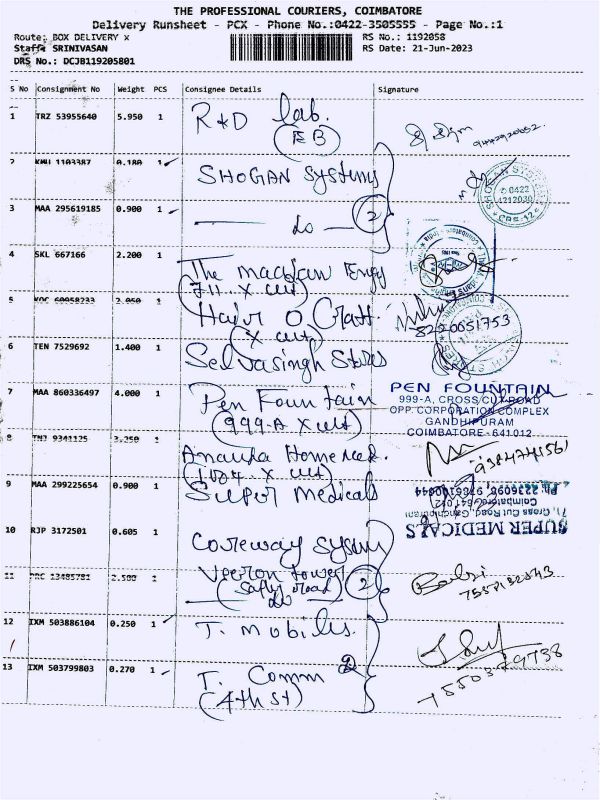 THE PROFESSIONAL COURIERS, COIMBATORE
Delivery Runsheet - PCX - Phone No.:0422-3505555 - Page No.:1
Route: BOX DELIVERY x RS No.: 1192058
Staff: SRINIVASAN RS Date: 21-Jun-2023
DRS No.: DCJB119205801
S No Consignment No Weight PCS Consignee Details Signature
1 TRZ 53955640 5.950 1 R&D lab.
(EB)
2 KMU 1103387 0.180 1 SHOGAN Systems
3 MAA 295619185 0.900 1 — do — (2)
4 SKL 667166 2.200 1 The
(711.. X cut)
5 KOC 60058233 2.050 1 Hair O Craft
(X cut)
8220651753
6 TEN 7529692 1.400 1 Selvasingh Stores
7 MAA 860336497 4.000 1 Pen Fountain
(999-A X cut)
PEN FOUNTAIN
999-A, CROSS CUT ROAD
OPP. CORPORATION COMPLEX
GANDHIPURAM
COIMBATORE-641012
8 TNJ 9341125 3.250 1 Ananda Homened.
X cut)
9 MAA 299225654 0.900 1 Super Medicals
SUPER MEDICALS
71, Cross Cut Road, Gandhipuram
10 RJP 3172501 0.605 1 Coreway System
Veeron tower
11 PRC 13485781 2.500 1 — do — (2)
12 IXM 503886104 0.250 1 T. Mobiles.
13 IXM 503799803 0.270 1 T. Comm
(4th st)